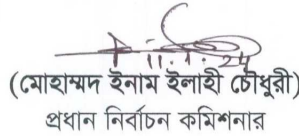 (মোহাম্মদ ইনাম ইলাহী চৌধুরী)
প্রধান নির্বাচন কমিশনার